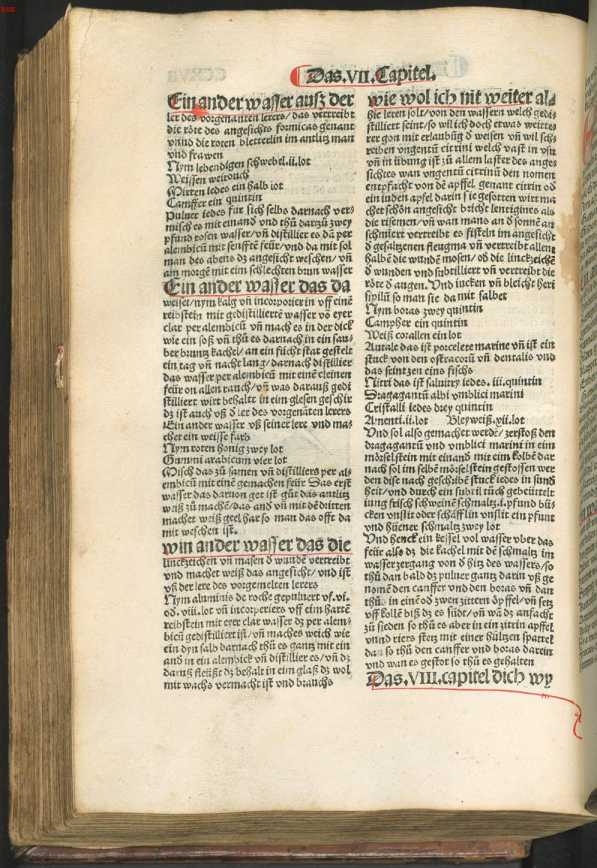 Das.VII.Capitel.
Ein ander wasser ausz der
ler des vorgenanten lerers/das vertreibt
die röte des angesichts formicas genant
vnnd die roten bletterlin im antlitz man
vnd frawen
Nym lebendigen schwebel.ii.lot
Weissen weirouch
Mirten iedes ein halb lot
Camffer ein quintin
Puluer iedes für sich selbs darnach ver-
misch es mit einand vnd thů darzů zwey
pfund rosen wasser/vñ distillier es dã per
alembicũ mit senffte feür/vnd da mit sol
man des abens dz angesicht weschen/vñ
am morgẽ mit eim schlechten brun wasser
Ein ander wasser das da
weiset/nym kalg vñ incorporier in vff einẽ
reibstein mit gedistilliertẽ wasser võ eyer
clar per alembicũ vñ mach es in der dick
wie ein soß vñ thů es darnach in ein sau-
ber buntz kachel/an ein fücht stat gestelt
ein tag vñ nacht lang/darnach distillier
das wasser per alembicũ mit einẽ cleinen
feür on allen rauch/vñ was darauß gedi
stilliert wirt behalt in ein glesen geschir
dz ist auch vß d ler des vorgenãten lerers
Ein ander wasser vß seiner lere vnd ma-
chet ein weisse farb
Nym roten honig zwey lot
Gummi arabicum vier lot
Misch das zů samen vñ distilliers per al-
embicũ mit einẽ gemachen feür Das erst
wasser das daruon get ist gůt das antlitz
weiß zů machẽ/das and vñ mit dẽ dritten
machet weiß geel har so man das offt da
mit weschen ist.
win ander wasser das die
linckzeichen vñ masen d wundẽ vertreibt
vnd machet weiß das angesicht/vnd ist
vß der lere des vorgemelten lerers
Nym aluminis de roche gepuluert vf.vi.
od.viii.lot vñ incorperiers vff eim hartẽ
reibstein mit eyer clar wasser dz per alem-
bicũ gedistilliert ist/vñ maches weich wie
ein dyn salb darnach thů es gantz mit ein
and in ein alembick vñ distillier es/vñ dz
daruß fleüßt dz behalt in eim glaß dz wol
mit wachs vermacht ist vnd brauchs
wie wol ich nit weiter al-
hie leren solt/von den wassern welch gedi-
stilliert seint/so will ich doch etwas weitte-
rer gon mit erlaubũg d weisen vñ wil sch-
reiben vngentũ citrini welch vast in vsũ
vñ in übung ist zů allem laster des anges
sichtes wan vngentũ citrinũ den nomen
entpfacht von dẽ apffel genant citrin od
ein inden apfel darin sie gesotten wirt ma
chet schön angesicht bricht lentigines als
die risemen/vñ wan mans an d sonnẽ an
schmiert vertreibt es fisteln im angesicht
d gesaltzenen fleugma vñ vertreibt allent
halbẽ die wundẽ mosen/od die linckzeichẽ
d wunden vnd subtilliert vñ vertreibt die
röte d augen. Vnd iucken vñ bleicht heri
sipilũ so man sie da mit salbet
Nym boras zwey quintin
Campher ein quintin
Weiß corallen ein lot
Antale das ist porcelete marine vñ ist ein
stuck von den ostracorũ vñ dentalis vnd
das seint zen eins fischs
Nitri das ist saluitry iedes.iii.quintin
Dragagantũ albi vmblici marini
Cristalli iedes drey quintin
Amenti.ii.lot Bleyweiß.xii.lot
Vnd sol also gemachet werdẽ/zerstoß den
dragagantũ vnd vmblici marini in eim
mörselstein mit einand mit eim kolbẽ dar
nach sol im selbẽ mörselstein gestossen wer
den dise nach geschribẽ stuck iedes in sund
heit/vnd durch ein subtil tůch gebeüttelt
iung frisch schweinẽ schmaltz.i.pfund bü-
cken vnslit oder schäfflin vnslit ein pfunt
vnd hüener schmaltz zwey lot
Vnd henck ein kessel vol wasser vber das
feür also dz die kachel mit dẽ schmaltz im
wasser zergang von d hitz des wassers/so
thů dan bald dz puluer gantz darin vß ge
nomẽ den canffer vnd den boras vñ dan
thůs in einẽ od zwen zittern öpffel/vñ setz
vff kolẽ biß dz es süde/vñ wã dz anfacht
zů sieden so thů es aber in ein zitrin apffel
vnnd riers stetz mit einer hültzen spattel
dan so thů den canffer vnd boras darein
vnd wan es gestot so thů es gehalten
Das.VIII.capitel dich wy